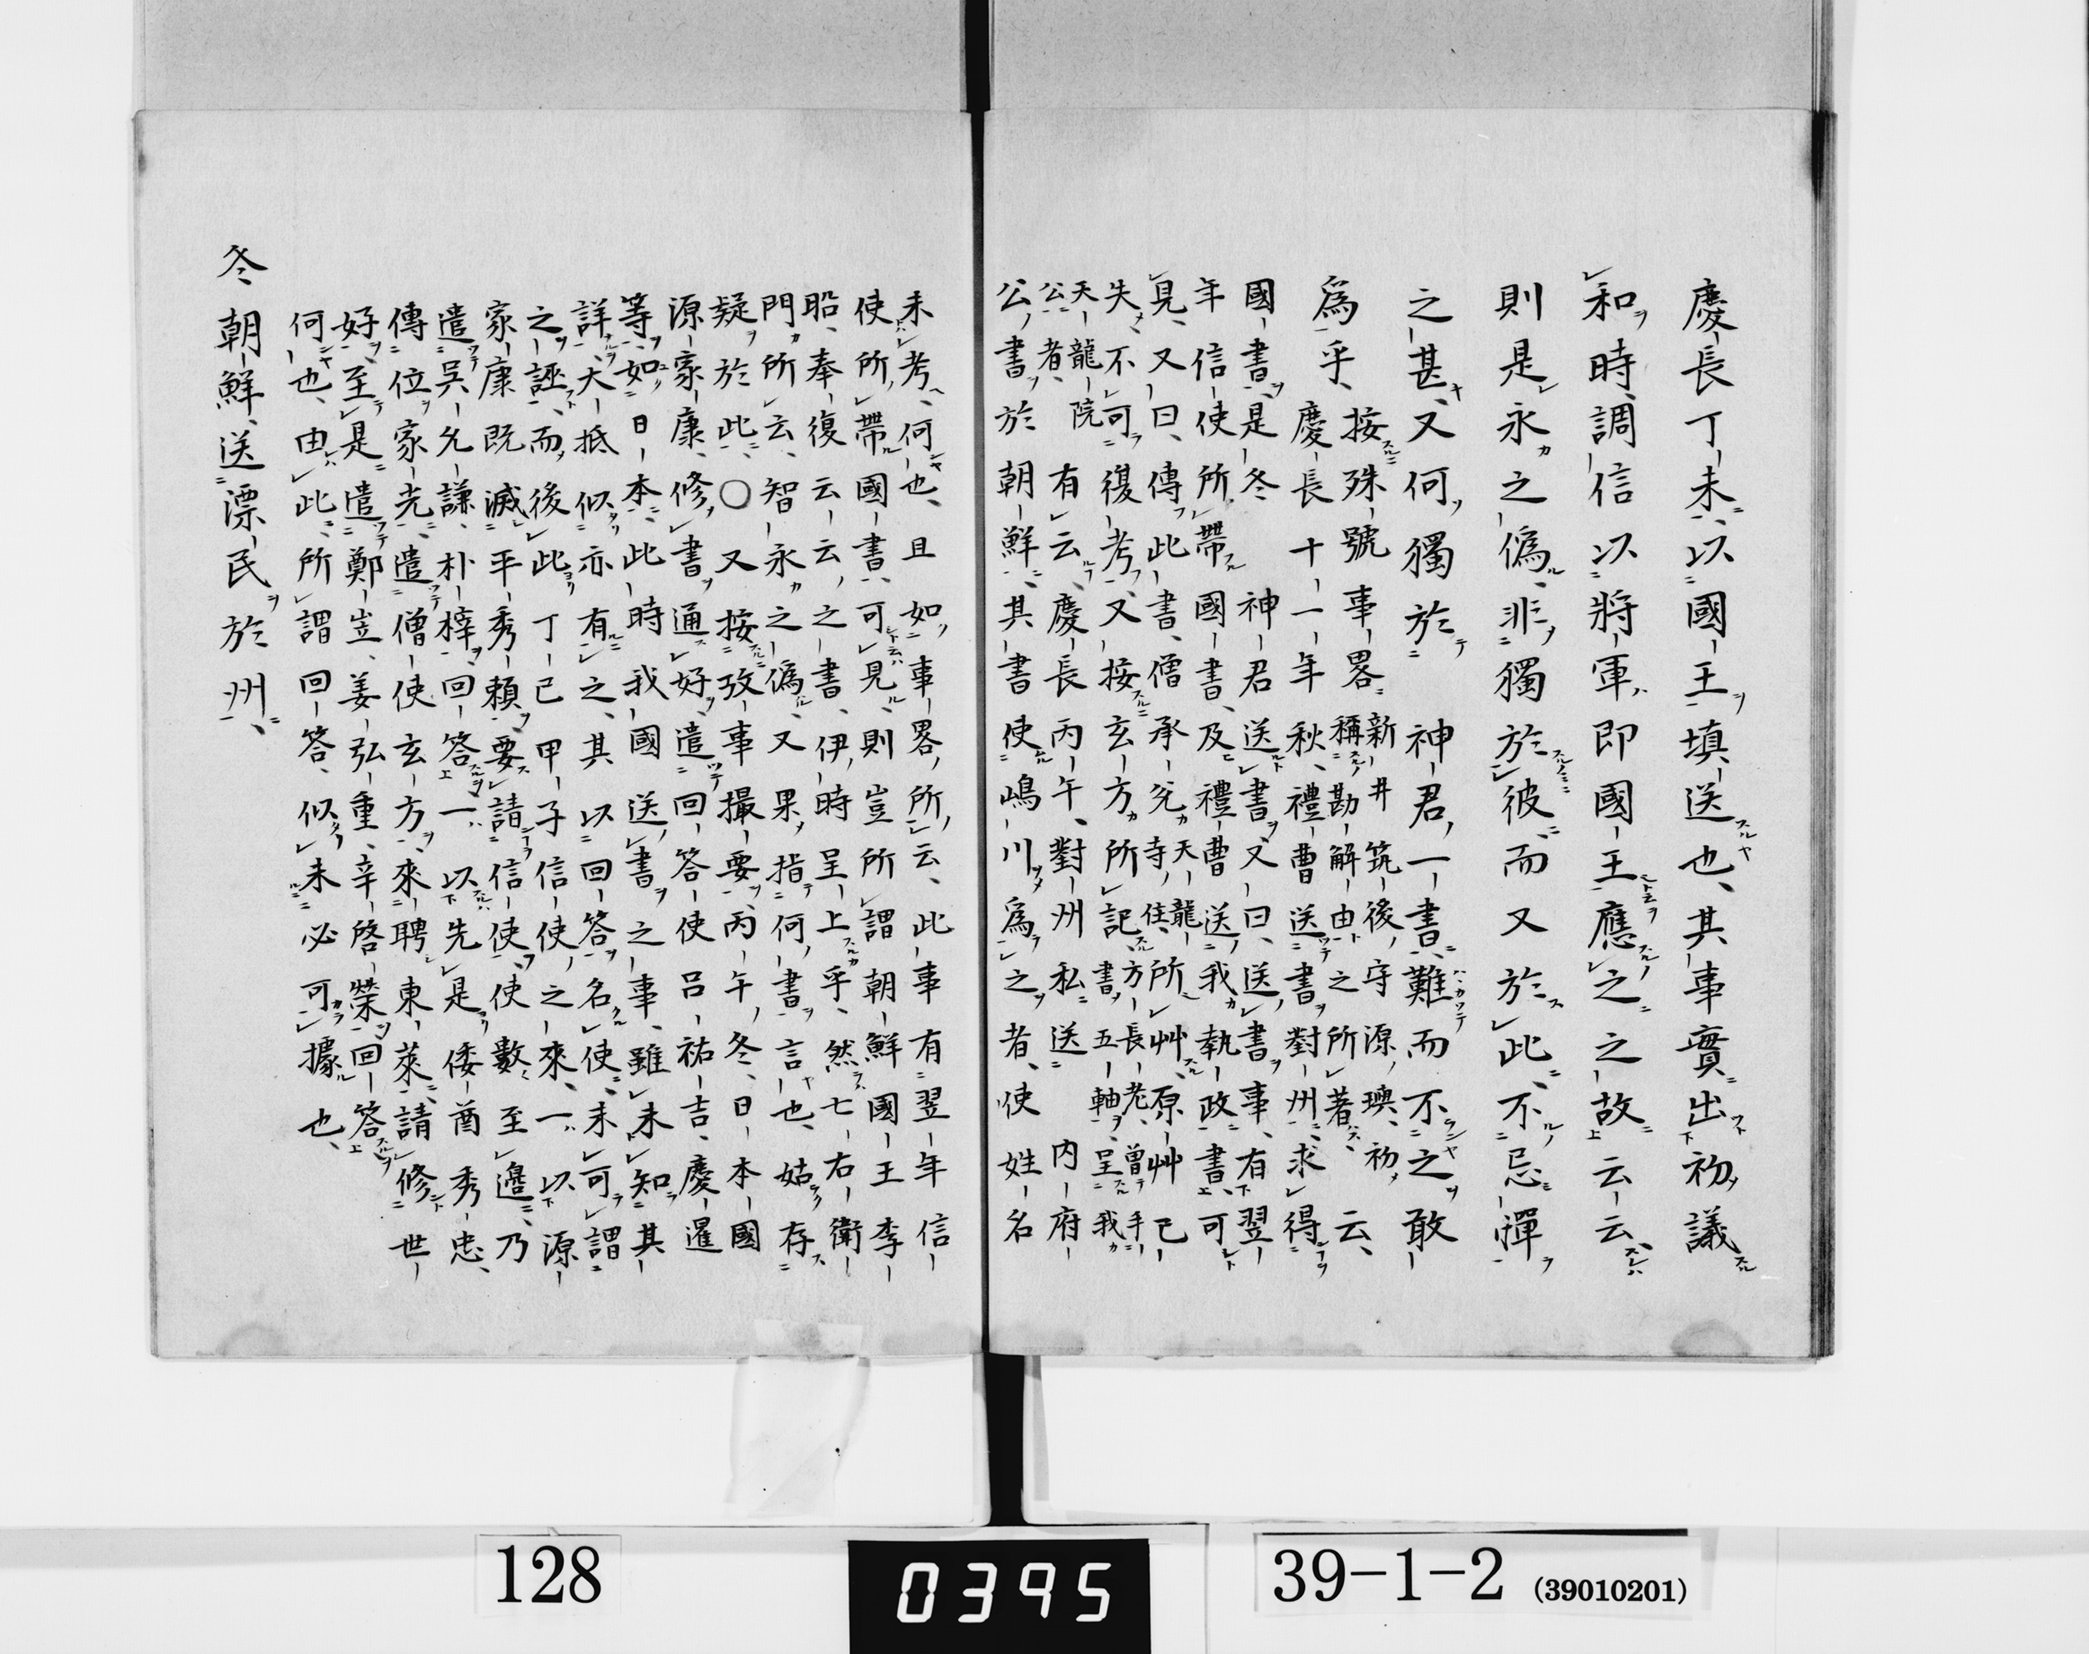 慶長丁未以國王填送也其事實出初議
和時調信以將軍即國王應之之故云云
則是永之偽非獨於彼而又於此不忌憚
之甚又何獨於 神君一書難而不之敢
爲乎 按殊號事畧 新井筑後守源璵初
稱勘解由之所著 云
慶長十一年秋禮曹送書對州求得
國書是冬 神君送書又曰送書事有翌
年信使所帶國書及禮曹送我執政書可
見又曰傳此書僧承兊 天龍寺住 所艸原艸已
失不可復考又按玄方所記 方長老曽手書五軸呈我
天龍院公者 有云慶長丙午對州私送 内府
公書於朝鮮其書使嶋川爲之者使姓名
未考何也且如事畧所云此事有翌年信
使所帶國書可見則豈所謂朝鮮國王李
昖奉復云云之書伊時呈上乎然七右衛
門所云智永之偽又果指何書言也姑存
疑於此○又按攷事撮要丙午冬日本國
源家康修書通好遣回答使呂祐吉慶暹
等如日本此時我國送書之事雖未知其
詳大抵似亦有之其以回答名使未可謂
之誣而後此丁巳甲子信使之來一以源
家康既滅平秀頼要請信使使數至邊乃
遣吳允謙朴梓回答一以先是倭酋秀忠
傳位家光遣僧使玄方來聘東萊請修世
好至是遣鄭岦姜弘重辛啓榮回答
何也由此所謂回答似未必可據也
冬朝鮮送漂民於州
128
0395
39-1-2 (39010201)